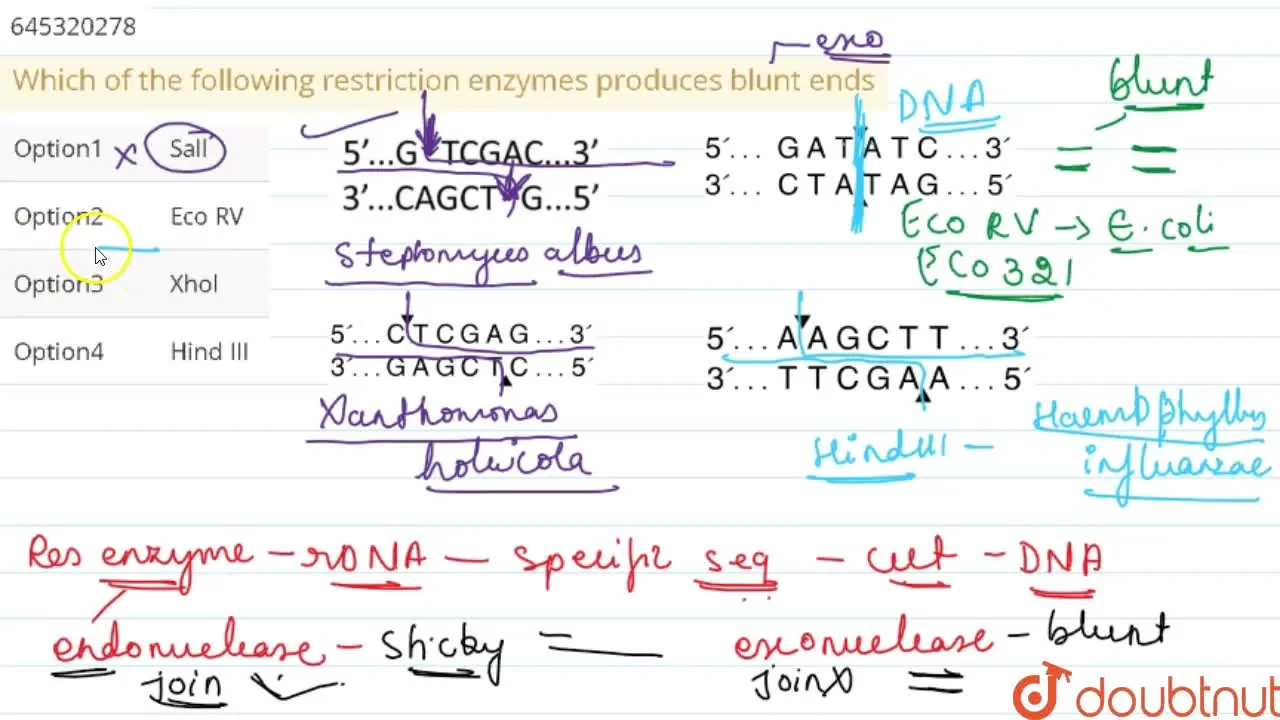 645320278
exo
Which of the following restriction enzymes produces blunt ends
blunt
DNA
Option1 x SalI
5′...G TCGAC...3′
3′...CAGCT G...5′
5′... G A T A T C ...3′
3′... C T A T A G ... 5′
Option2 Eco RV
Eco RV → E. coli
Eco 321
Steptomyces albus
Option3 XhoI
5′...C T C G A G...3′
3′...G A G C T C... 5′
5′... A A G C T T ...3′
3′... T T C G A A ... 5′
Option4 Hind III
Xanthomonas
holicola
HindIII —
Haemophyllus
influanzae
Res enzyme — rDNA — specific seq — cut — DNA
endonuclease — sticky
exonuclease — blunt
join
join x
doubtnut